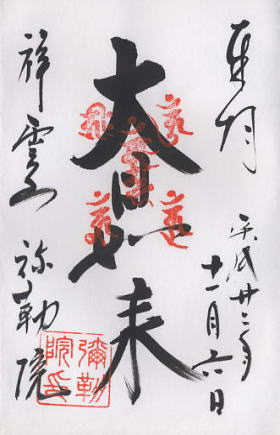 奉拝
平成廿三年
十一月六日
大日如来
祥雲山
弥勒院
彌勒
院印